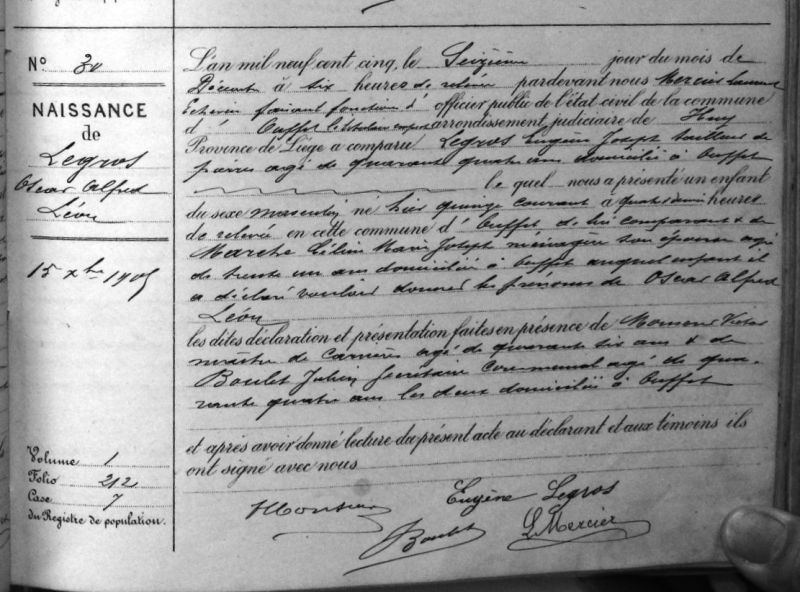 N° 30
NAISSANCE
de
Legros
Oscar Alfred
Léon
15 xbre 1905
Volume 1
Folio 212
Case 7
du Registre de population.
L'an mil neuf cent cinq, le Seizième jour du mois de
Décembre à six heures de relevée pardevant nous Mercier
Echevin faisant fonction d'officier public de l'état civil de la commune
d'Ouffet arrondissement judiciaire de Huy
Province de Liège a comparu Legros Eugène Joseph tailleur de
pierres agé de quarante quatre ans domicilié à Ouffet
le quel nous a présenté un enfant
du sexe masculin né hier quinze courant à quatre heures
de relevée en cette commune d'Ouffet de lui comparant & de
Marche Joseph ménagère son épouse agée
de trente un ans domiciliée à Ouffet auquel enfant il
a déclaré vouloir donner les prénoms de Oscar Alfred
Léon
les dites déclaration et présentation faites en présence de Monseur Victor
maître de carrières agé de quarante six ans & de
Boulet Julien Secrétaire communal agé de qua-
rante quatre ans les deux domiciliés à Ouffet
et après avoir donné lecture du présent acte au déclarant et aux témoins ils
ont signé avec nous
Monseur Eugène Legros
Boulet L. Mercier